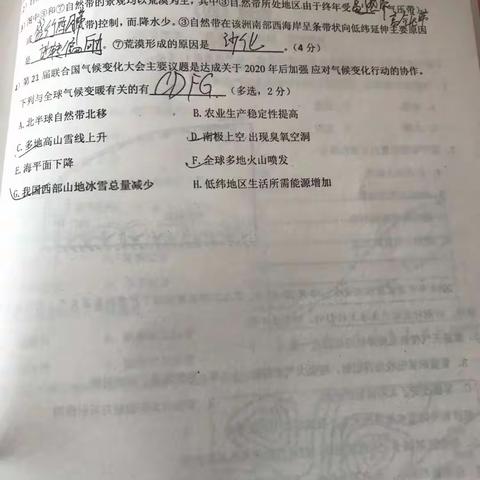 图中③和⑦自然带的景观均以荒漠为主，其中③自然带所处地区由于终年受
带)控制，而.降水少。③自然带在该洲南部西海岸呈条带状向低纬延伸主要原因
是 。⑦荒漠形成的原因是 沙化 。(4 分)
第 21 届联合国气候变化大会主要议题是达成关于 2020 年后加强 应对气候变化行动的协作。
下列与全球气候变暖有关的有 CDFG (多选，2 分)
A.北半球自然带北移 B.农业生产稳定性提高
C.多地高山雪线上升 D.南极上空 出现臭氧空洞
E.海平面下降 F.全球多地火山喷发
G.我国西部山地冰雪总量减少 H.低纬地区生活所需能源增加